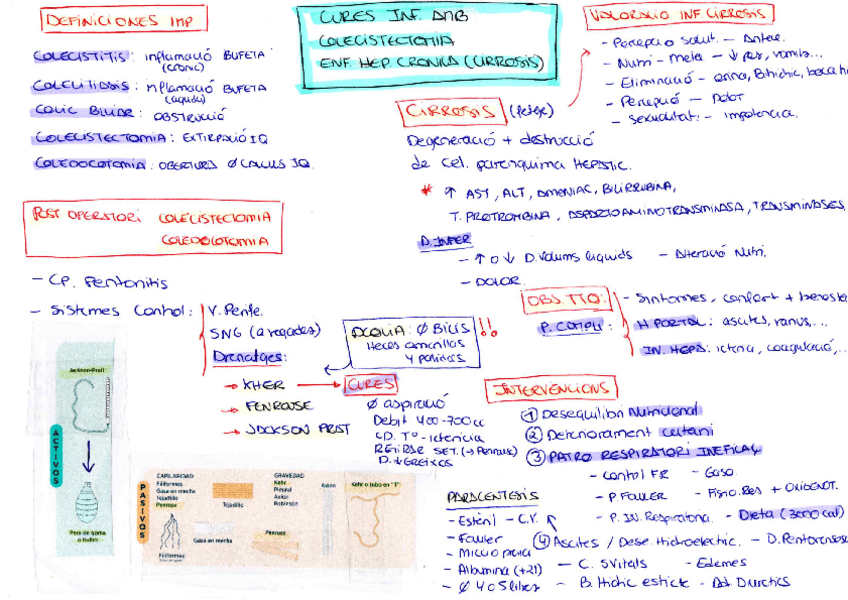 DEFINICIONES IMP
COLECISTITIS: inflamació BUFETA
(CRONIC)
COLELITIASIS: inflamació BUFETA
(aguda)
COLIC BILIAR: OBSTRUCIÓ
COLECISTECTOMIA: EXTIRPACIÓ IQ
COLEDOCOTOMIA: OBERTURA Ø CALCULS IQ.
CURES INF. AMB
COLECISTECTOMIA
ENF. HEP CRONICA (CIRROSIS)
VALORACIO INF CIRROSIS
- Percepció salut. - Antec.
- Nutri - meta - ↓ pes, vomits...
- Eliminació - orina, B.hidric,
- Percepció - Dolor
- Sexualitat: - impotencia.
CIRROSIS (fetge)
Degeneració + destrucció
de cel. parenquima HEPATIC.
* ↑ AST, ALT, AMONIAC, BILIRRUBINA,
T. PROTROMBINA, ASPARTOAMINOTRANSMINASA, TRANSMINASES
D. INFER
- ↑ o ↓ D. Volums liquids - Alteració Nutri.
- DOLOR.
POST OPERATORI COLECISTECTOMIA
COLEDOCOTOMIA
- CP. Peritonitis
- Sistemes Control: V. Perife.
SNG (a vegades)
Drenatges:
→ KHER → CURES
→ PENROSE
→ JACKSON PRAT
ACOLIA: Ø BILIS !!
Heces amarillas
y pastosas
Ø aspiració
Debit 400-700cc
CD. Tº - ictericia
RETIRAR SET. (→ Penrose)
D. ↓ GREIXOS
OBJ. TTO: - Simtomes, confort + benesta
P. COMPLI: H. PORTAL: ascites, varius,...
IN. HEPS: icteria, coagulació,..
INTERVENCIONS
① Desequilibri Nutricional
② Deteriorament cutani
③ PATRO RESPIRATORI INEFICAÇ
- Control FR - Gaso.
- P. Fowler - Fisio.Res + OXIGENOT.
- P. IN. Respiratoria. - Dieta (3000 cal)
④ Ascites / Dese. Hidroelectric. - D.
- C. SVitals - Edemes
- B. Hidric estricte - Ad. Diuretics
PARACENTESIS
- Estéril - C.V.
- Fowler
- Micció previa
- Albumina (+2l)
- Ø 4 o 5 litres
ACTIVOS
Jackson-Pratt
Pera de goma
o bulbo
PASIVOS
CAPILARIDAD
Filiformes
Gasa en mecha
Tejadillo
Penrose
Filiformes
Gasa en mecha
Tejadillo
GRAVEDAD
Kehr
Pleural
Axion
Robinson
Penrose
Axion
Kehr o tubo en "T"